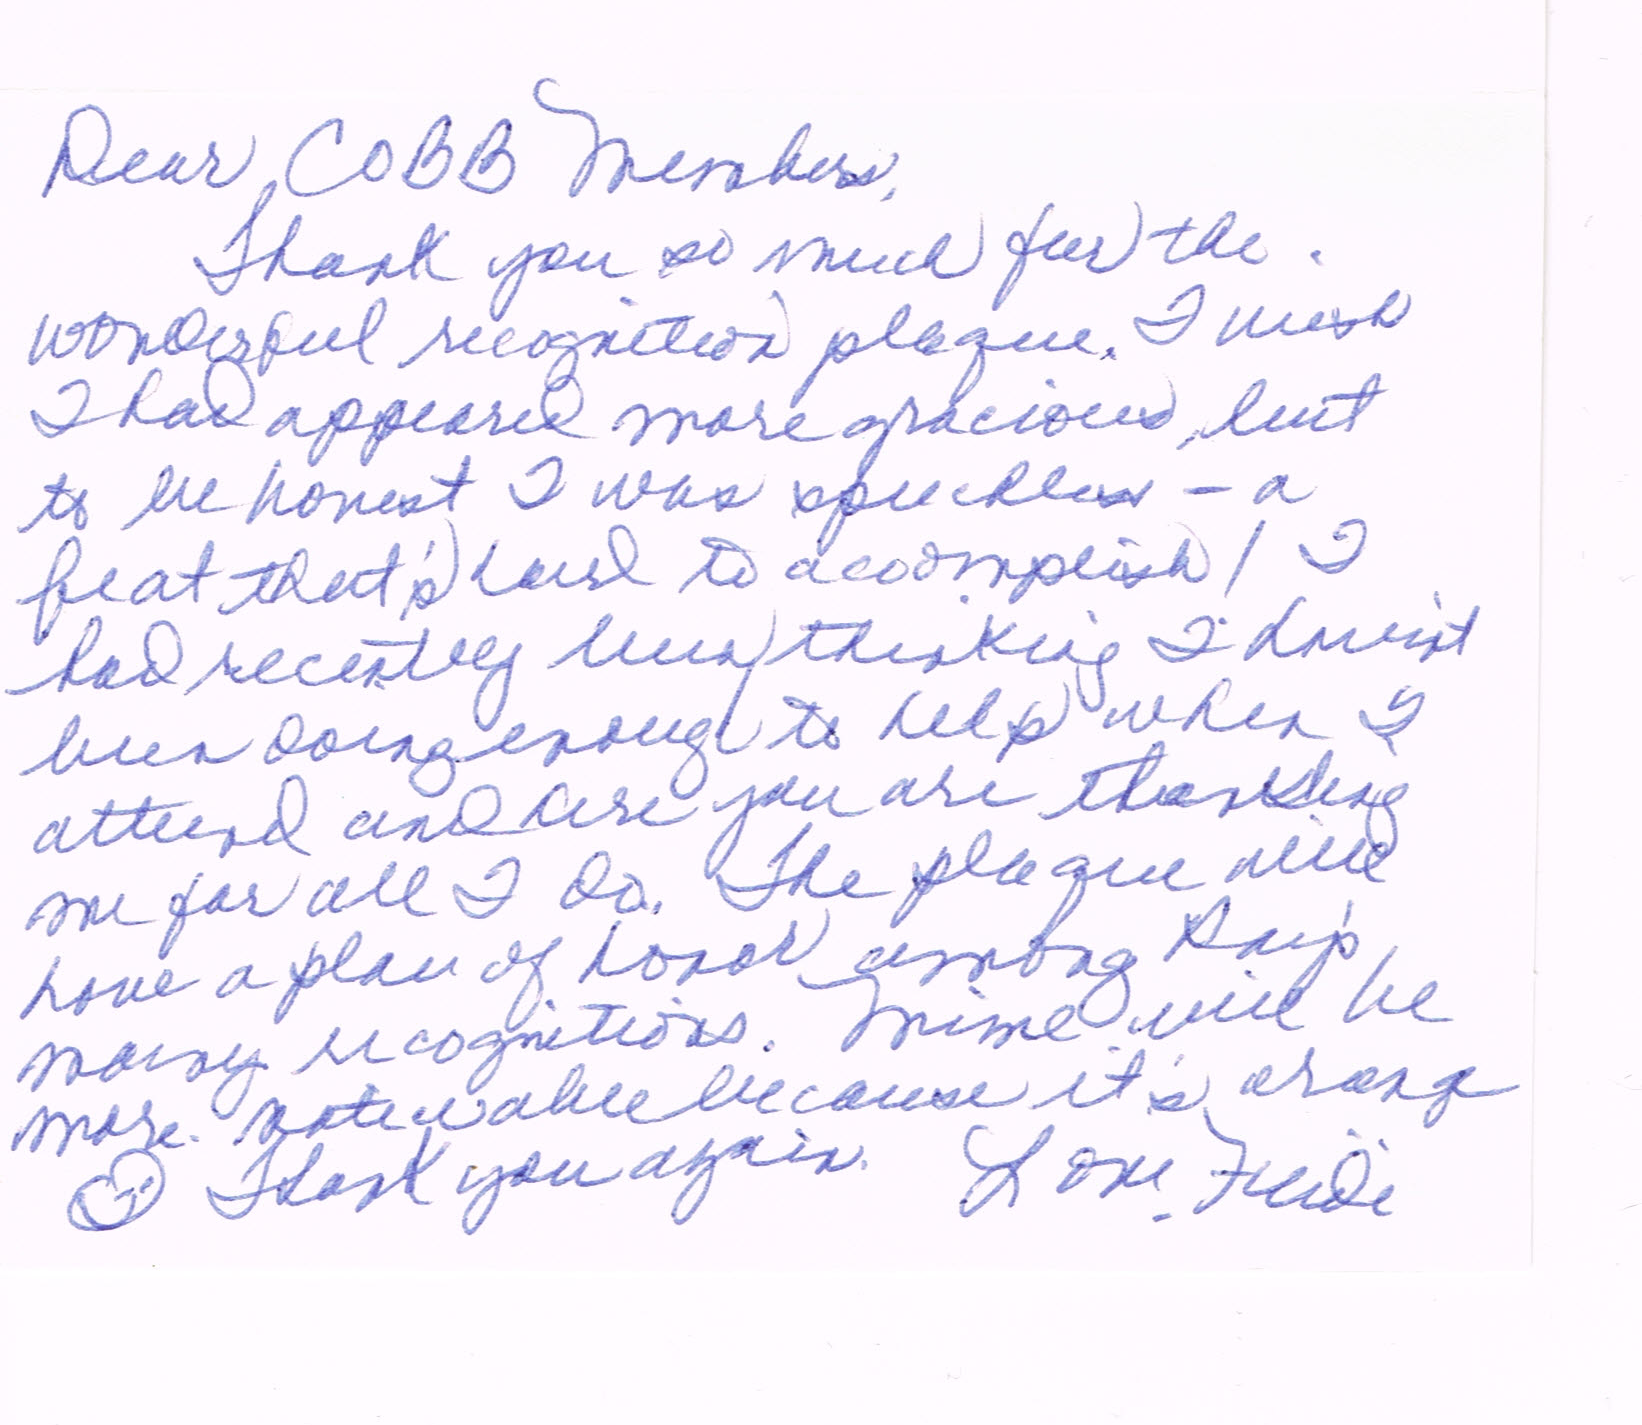 Dear COBB Members,
Thank you so much for the
wonderful recognition plaque. I wish
I had appeared more gracious, but
to be honest I was speechless - a
feat that's hard to accomplish! I
had recently been thinking I haven't
been doing enough to help when I
attend and here you are thanking
me for all I do. The plaque will
have a place of honor among
many recognitions. Mine will be
more noticeable because it's orange
Thank you again. Love,